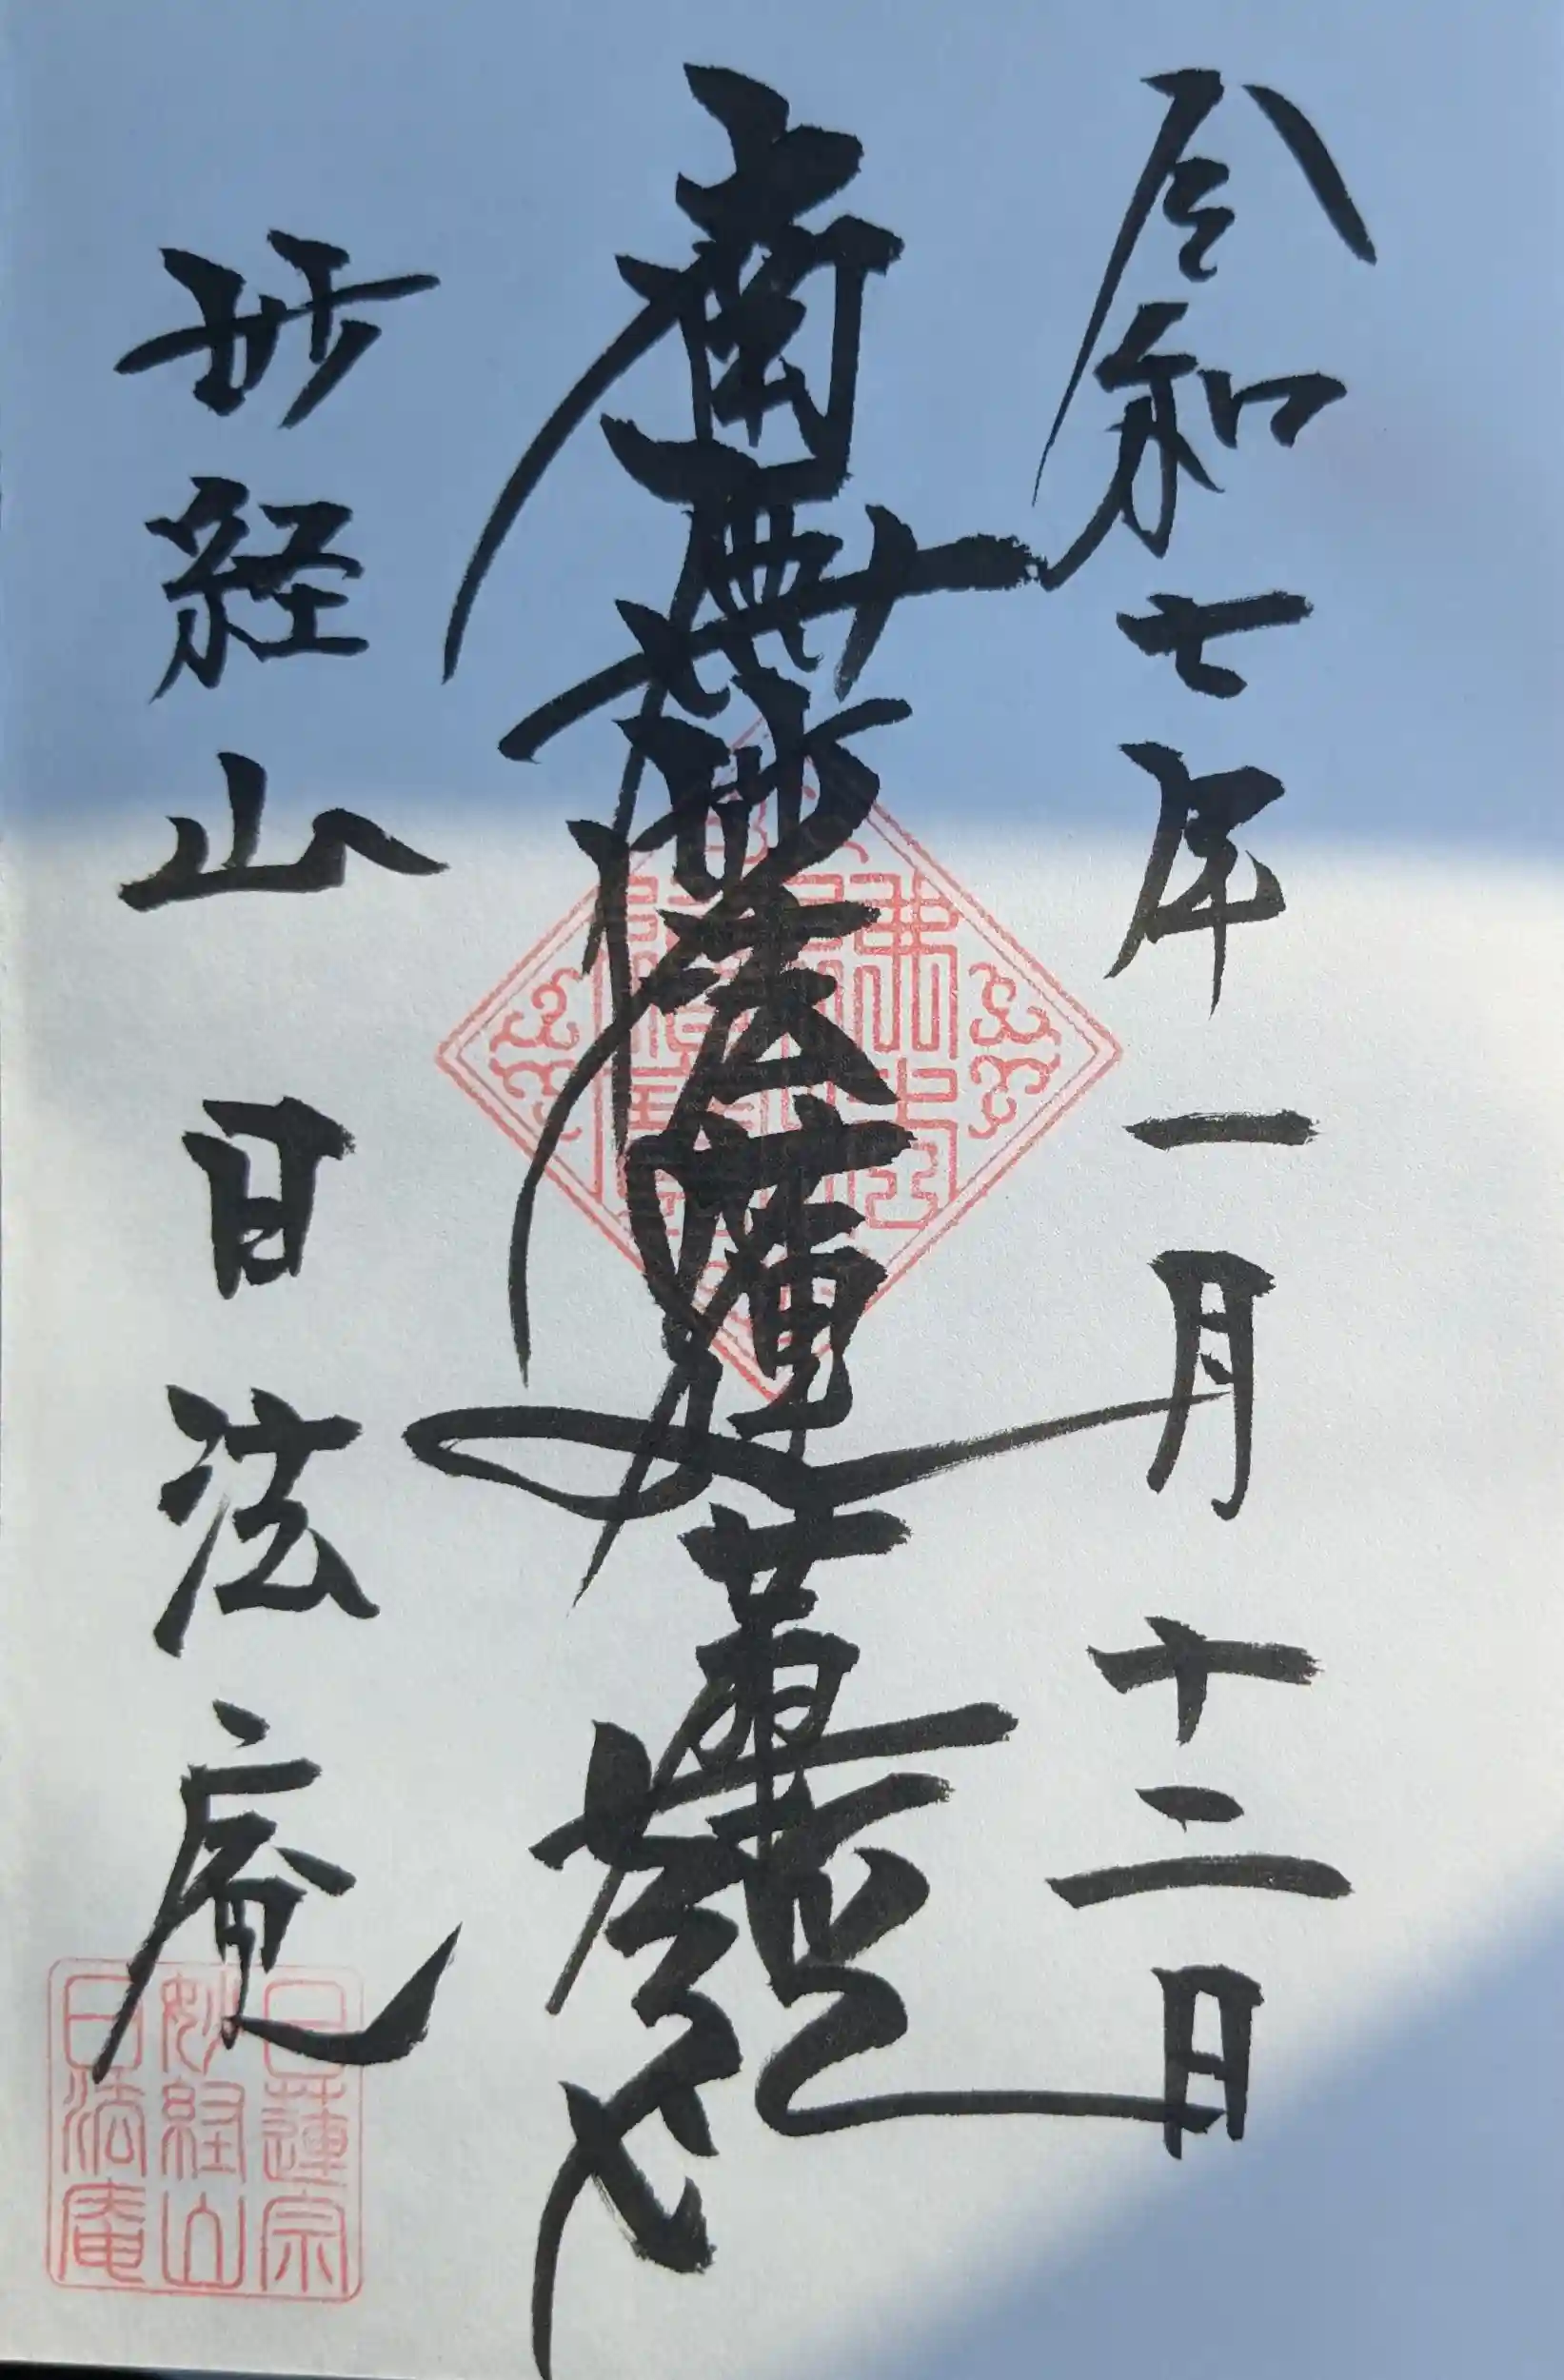 令和七年一月十二日
南無妙法蓮華経
妙経山 日法庵
日蓮宗
妙経山
日法庵